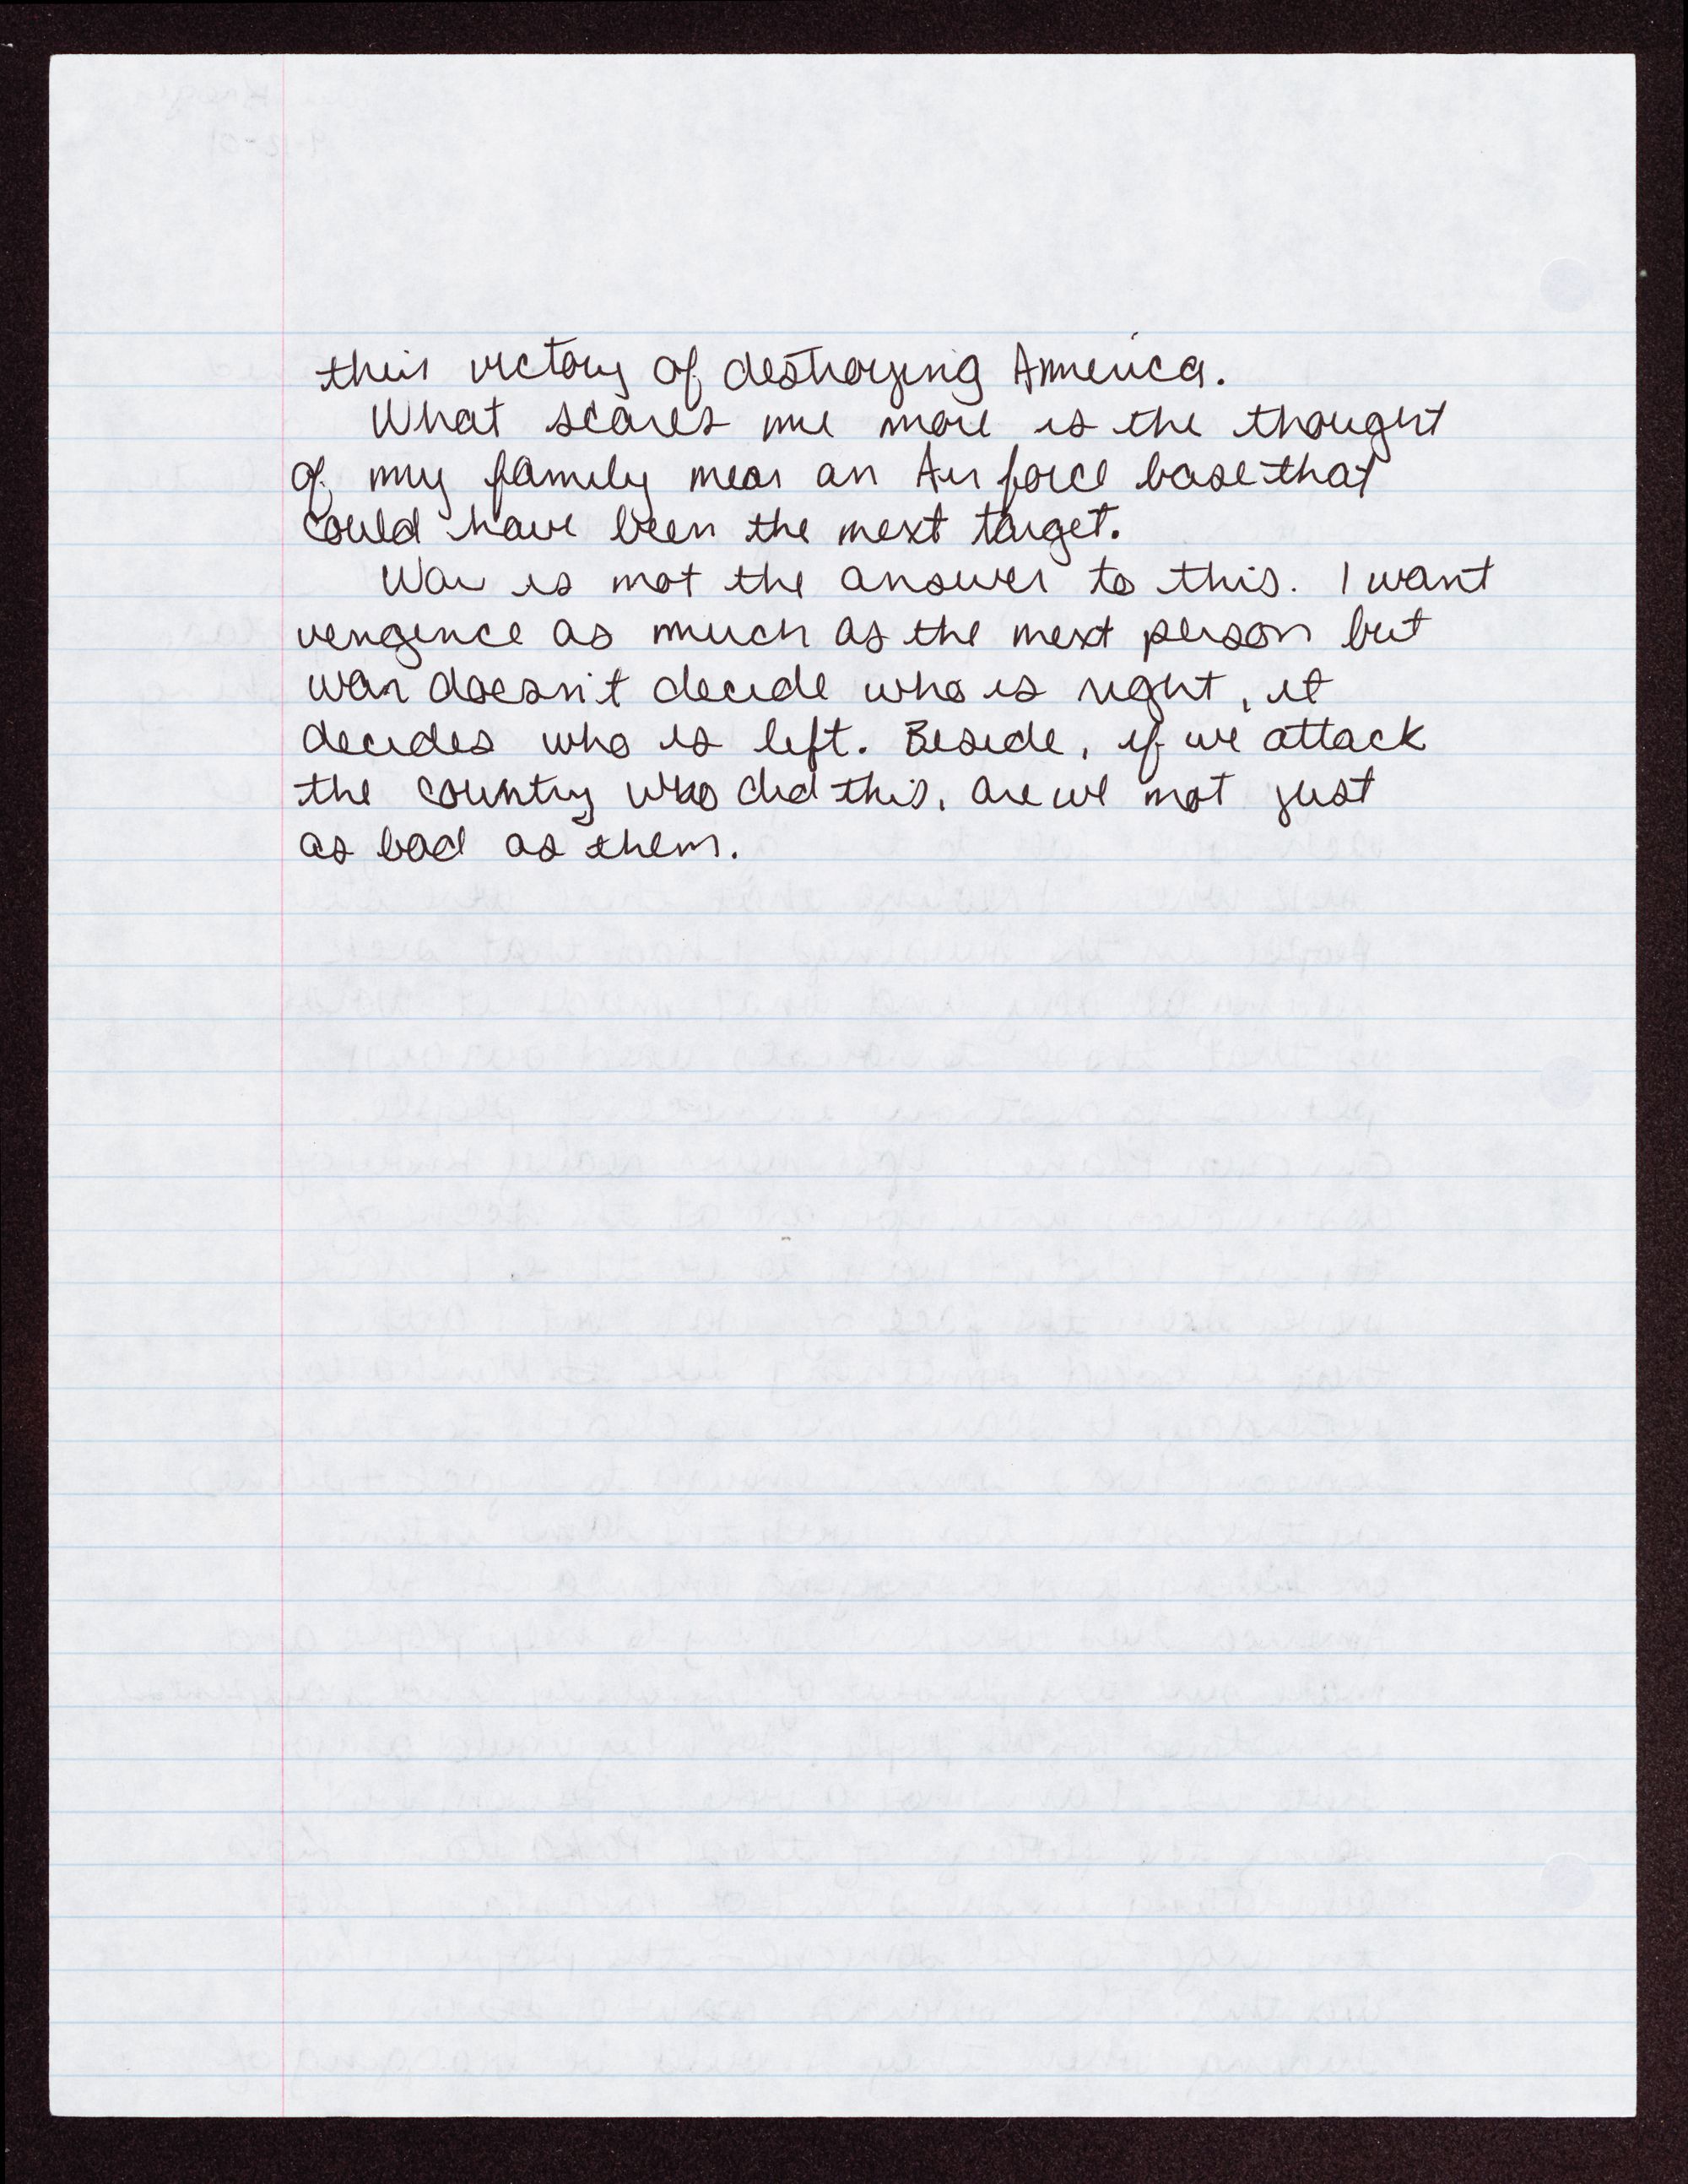 their victory of destroying America.
What scares me more is the thought
of my family near an Air force base that
could have been the next target.
War is not the answer to this. I want
vengence as much as the next person but
war doesn't decide who is right, it
decides who is left. Beside, if we attack
the country who did this, are we not just
as bad as them.